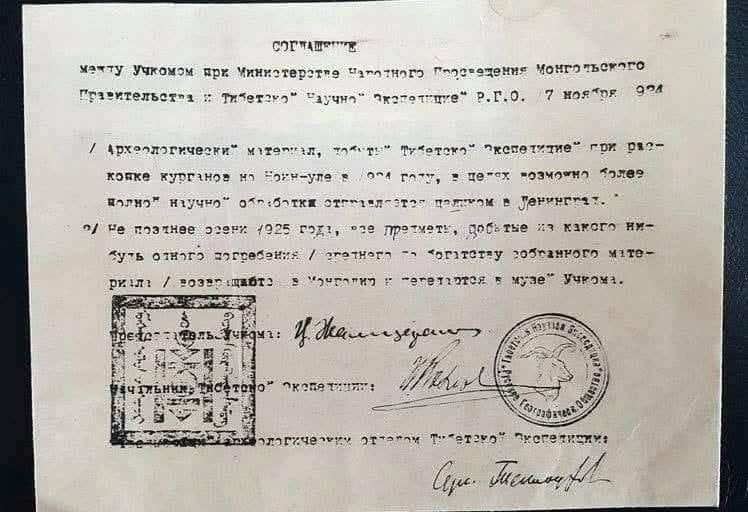 СОГЛАШЕНИЕ
между Учкомом при Министерстве Народного Просвещения Монгольского
Правительства и Тибетской Научной Экспедицией Р.Г.О. 7 ноября 924
/ Археологический материал, добытый Тибетской Экспедицией при рас-
копке курганов на Ноин-уле в 1924 году, в целях возможно более
полной научной обработки отправляется целиком в Ленинград.
2/ Не позднее осени 1925 года, все предметы, добытые из какого ни-
будь одного погребения / среднего по богатству собранного мате-
риала / возвращаются в Монголию и передаются в музей Учкома.
Председатель Учкома: Ц. Жамцарано
Начальник Тибетской Экспедиции:
археологическим отделом Тибетской Экспедиции:
Серг.
Тибетская Научная Экспедиция
Географическ. Общества